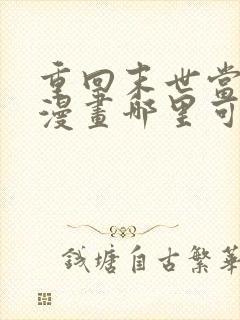 重回末世當
漫畫哪里可
錢塘自古繁華